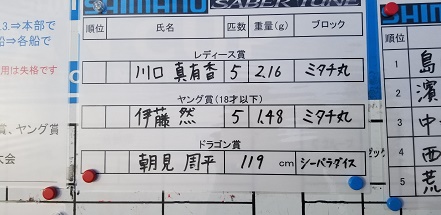 SHIMANO SABER TUNE
3.⇒本部で
船⇒各船で
用は失格です
賞、ヤング賞
大会
順位 氏名 匹数 重量(g) ブロック
レディース賞
川口 真有香 5 2.16 ミタチ丸
ヤング賞(18才以下)
伊藤 然 5 1.48 ミタチ丸
ドラゴン賞
朝見 周平 119 cm シーパラダイス
ビック
順位
1 島
2 濱
3 中
4 西
5 荒